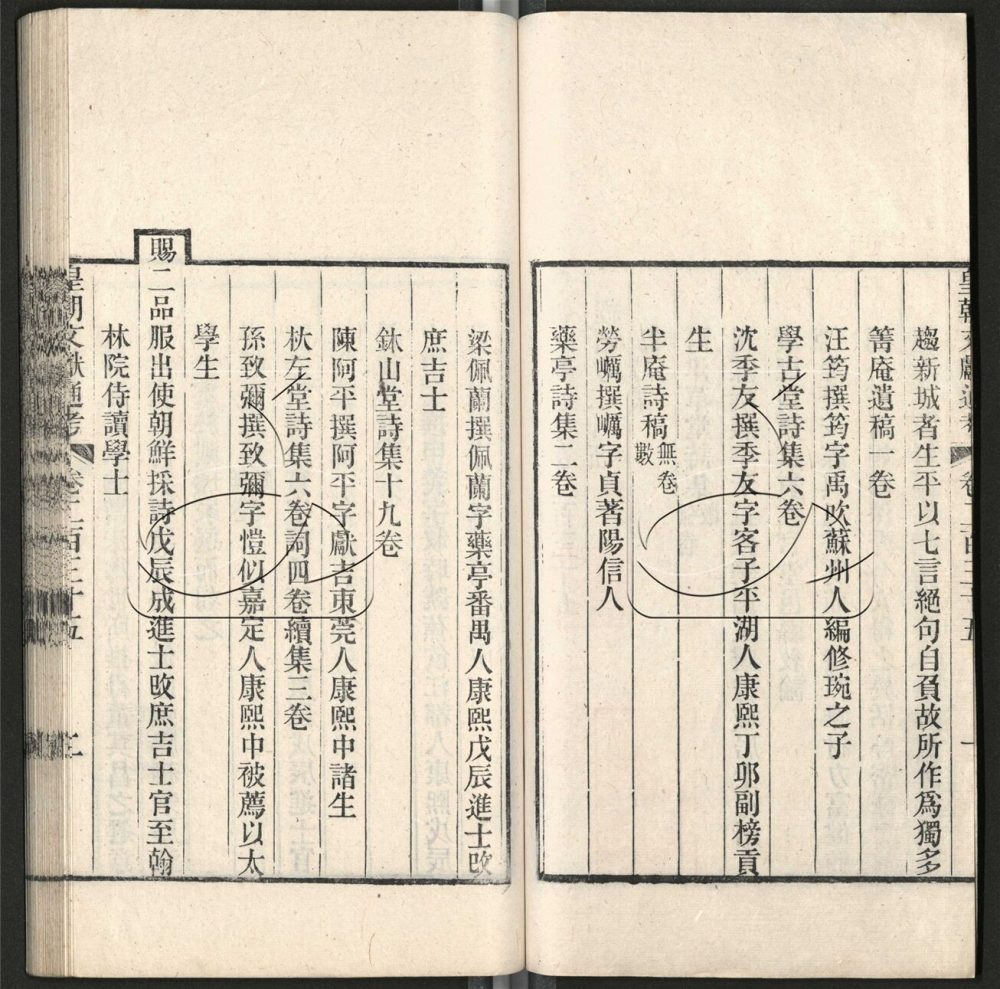 皇朝文獻通考 卷二百三十五
趨新城者生平以七言絕句自負故所作爲獨多
篛庵遺稿一卷
汪筠撰筠字禹吹蘇州人編修琬之子
學古堂詩集六卷
沈季友撰季友字客子平湖人康熙丁卯副榜貢
生
半庵詩稿無卷數
勞巁撰巁字貞著陽信人
藥亭詩集二卷
梁佩蘭撰佩蘭字藥亭番禺人康熙戊辰進士改
庶吉士
鉥山堂詩集十九卷
陳阿平撰阿平字獻吉東莞人康熙中諸生
杕左堂詩集六卷詞四卷續集三卷
孫致彌撰致彌字愷似嘉定人康熙中被薦以太
學生
賜二品服出使朝鮮採詩戊辰成進士改庶吉士官至翰
林院侍讀學士
皇朝文獻通考 卷二百三十五